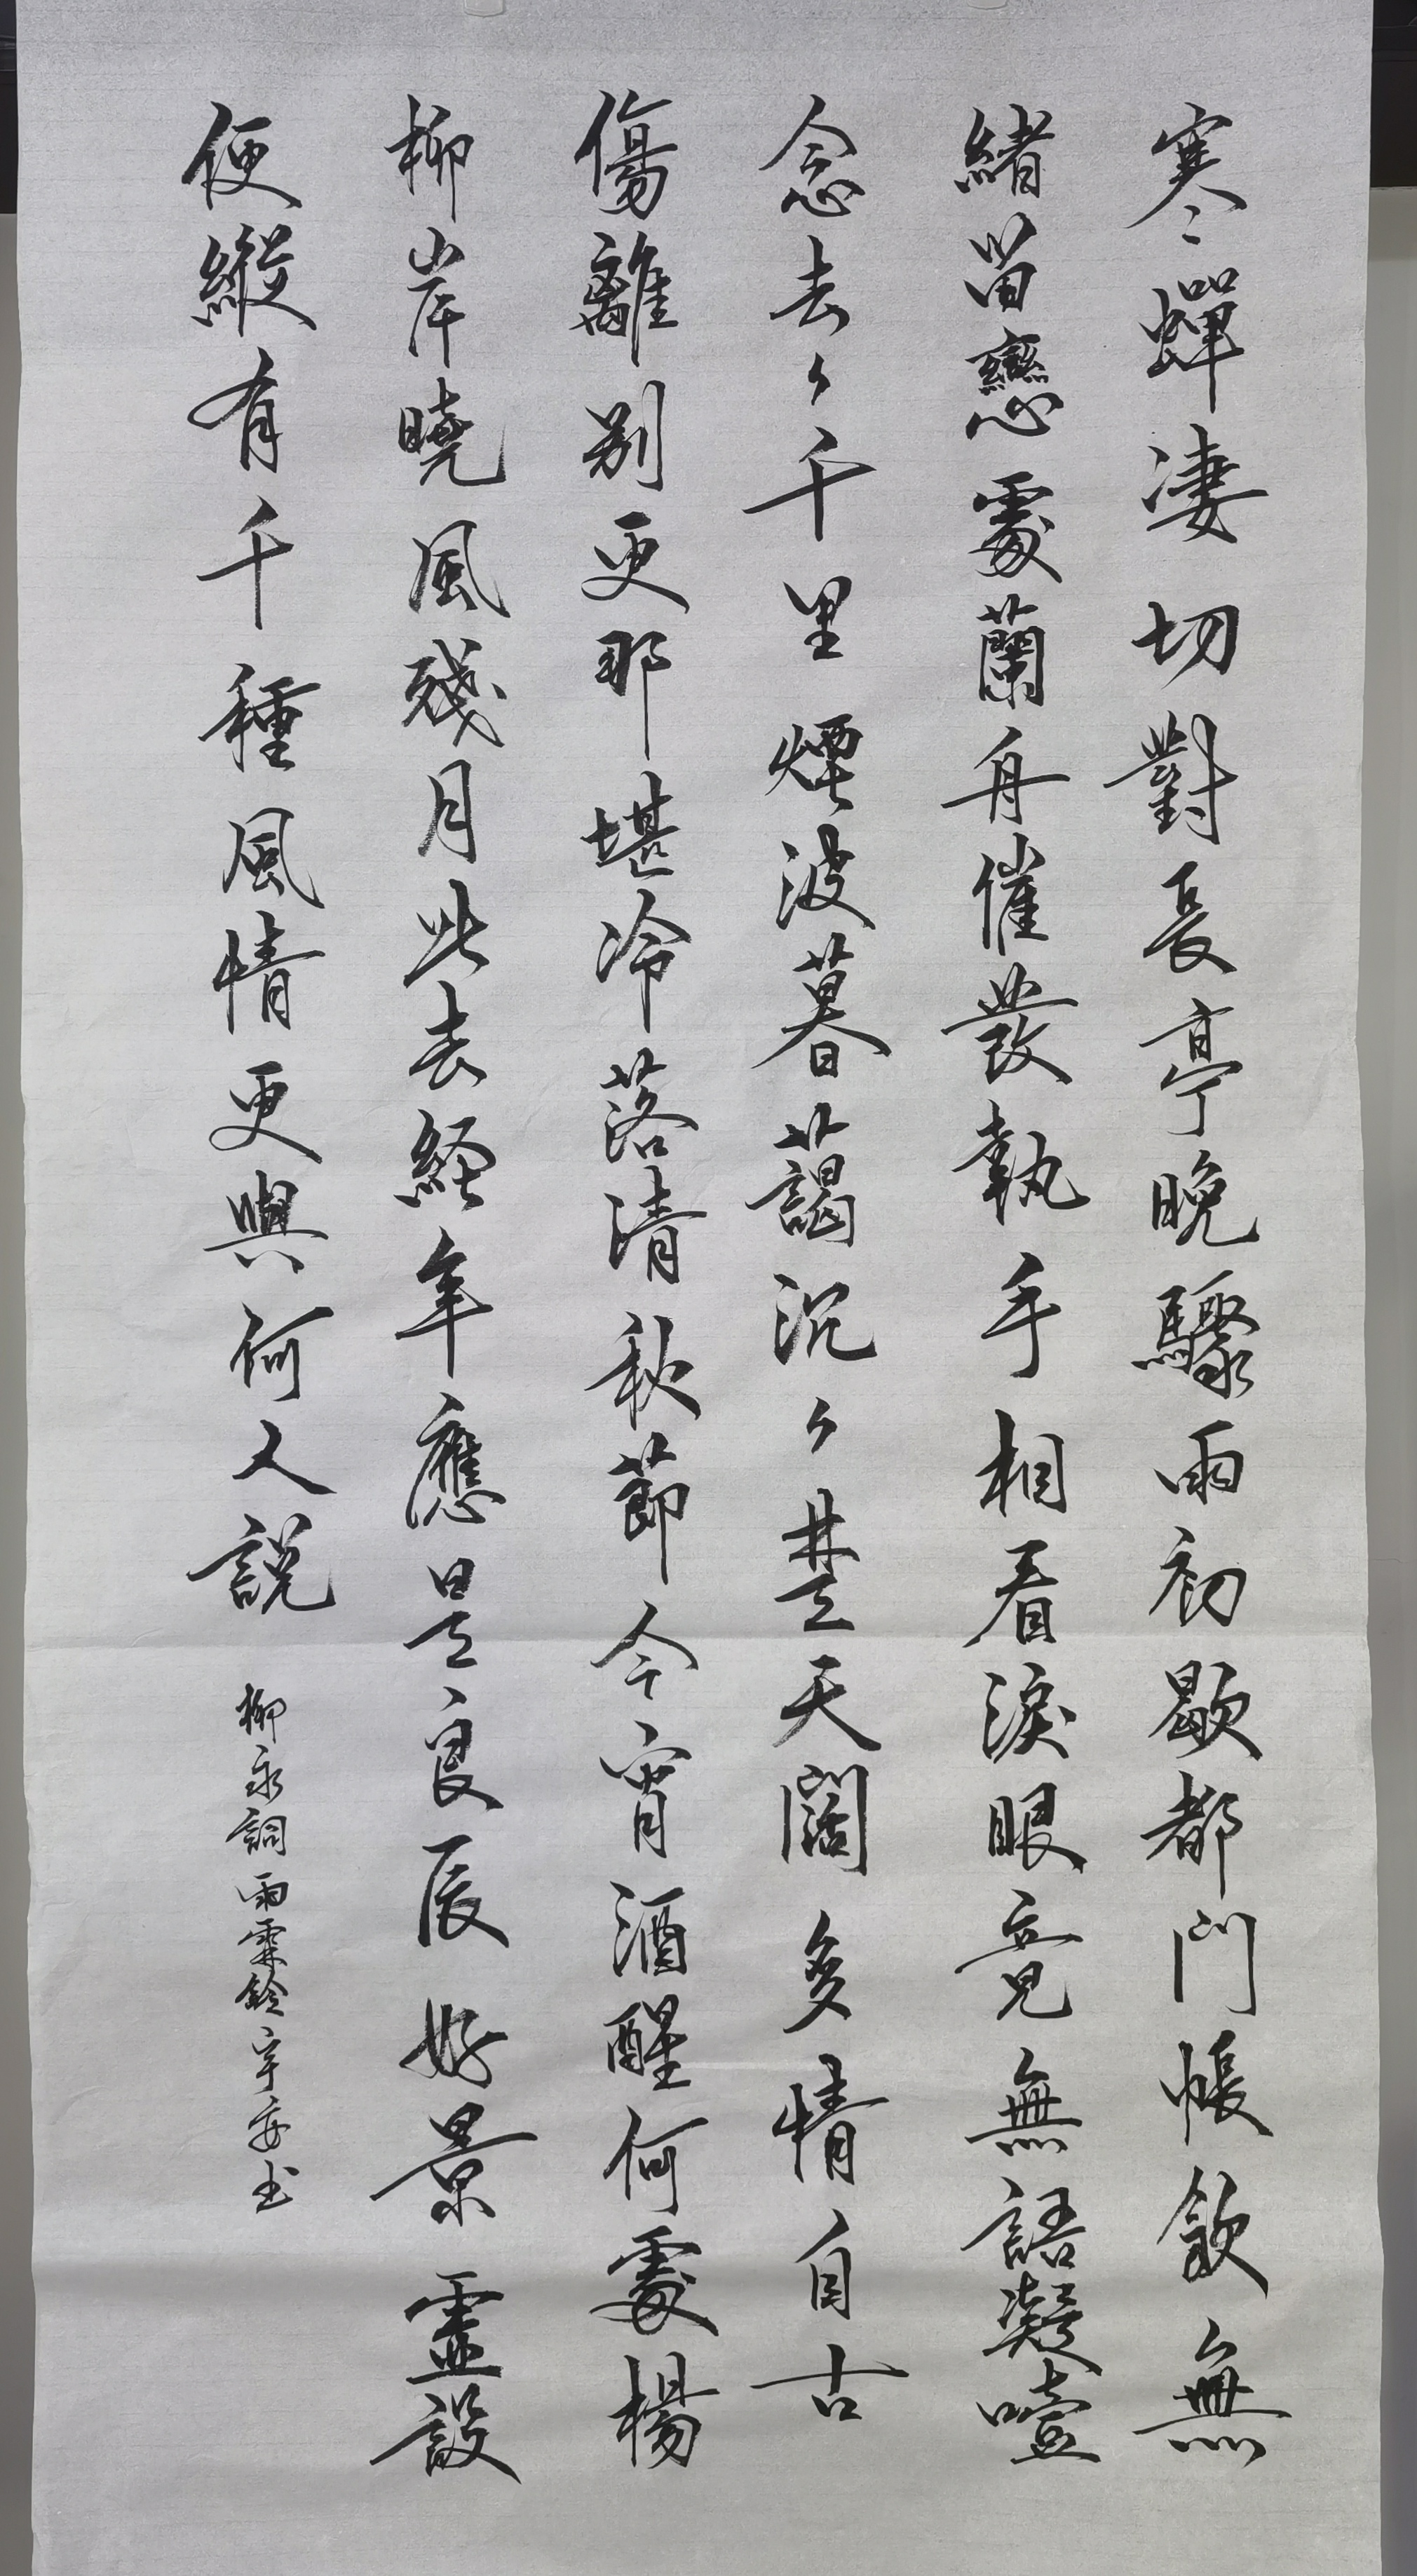 寒蟬凄切對長亭晚驟雨初歇都門帳飲無
緒留戀處蘭舟催發執手相看淚眼竟無語凝噎
念去々千里煙波暮藹沉々楚天闊多情自古
傷離别更那堪冷落清秋節今宵酒醒何處楊
柳岸曉風殘月此去経年應是良辰好景虛設
便縱有千種風情更與何人説
柳永詞雨霖鈴宇安书